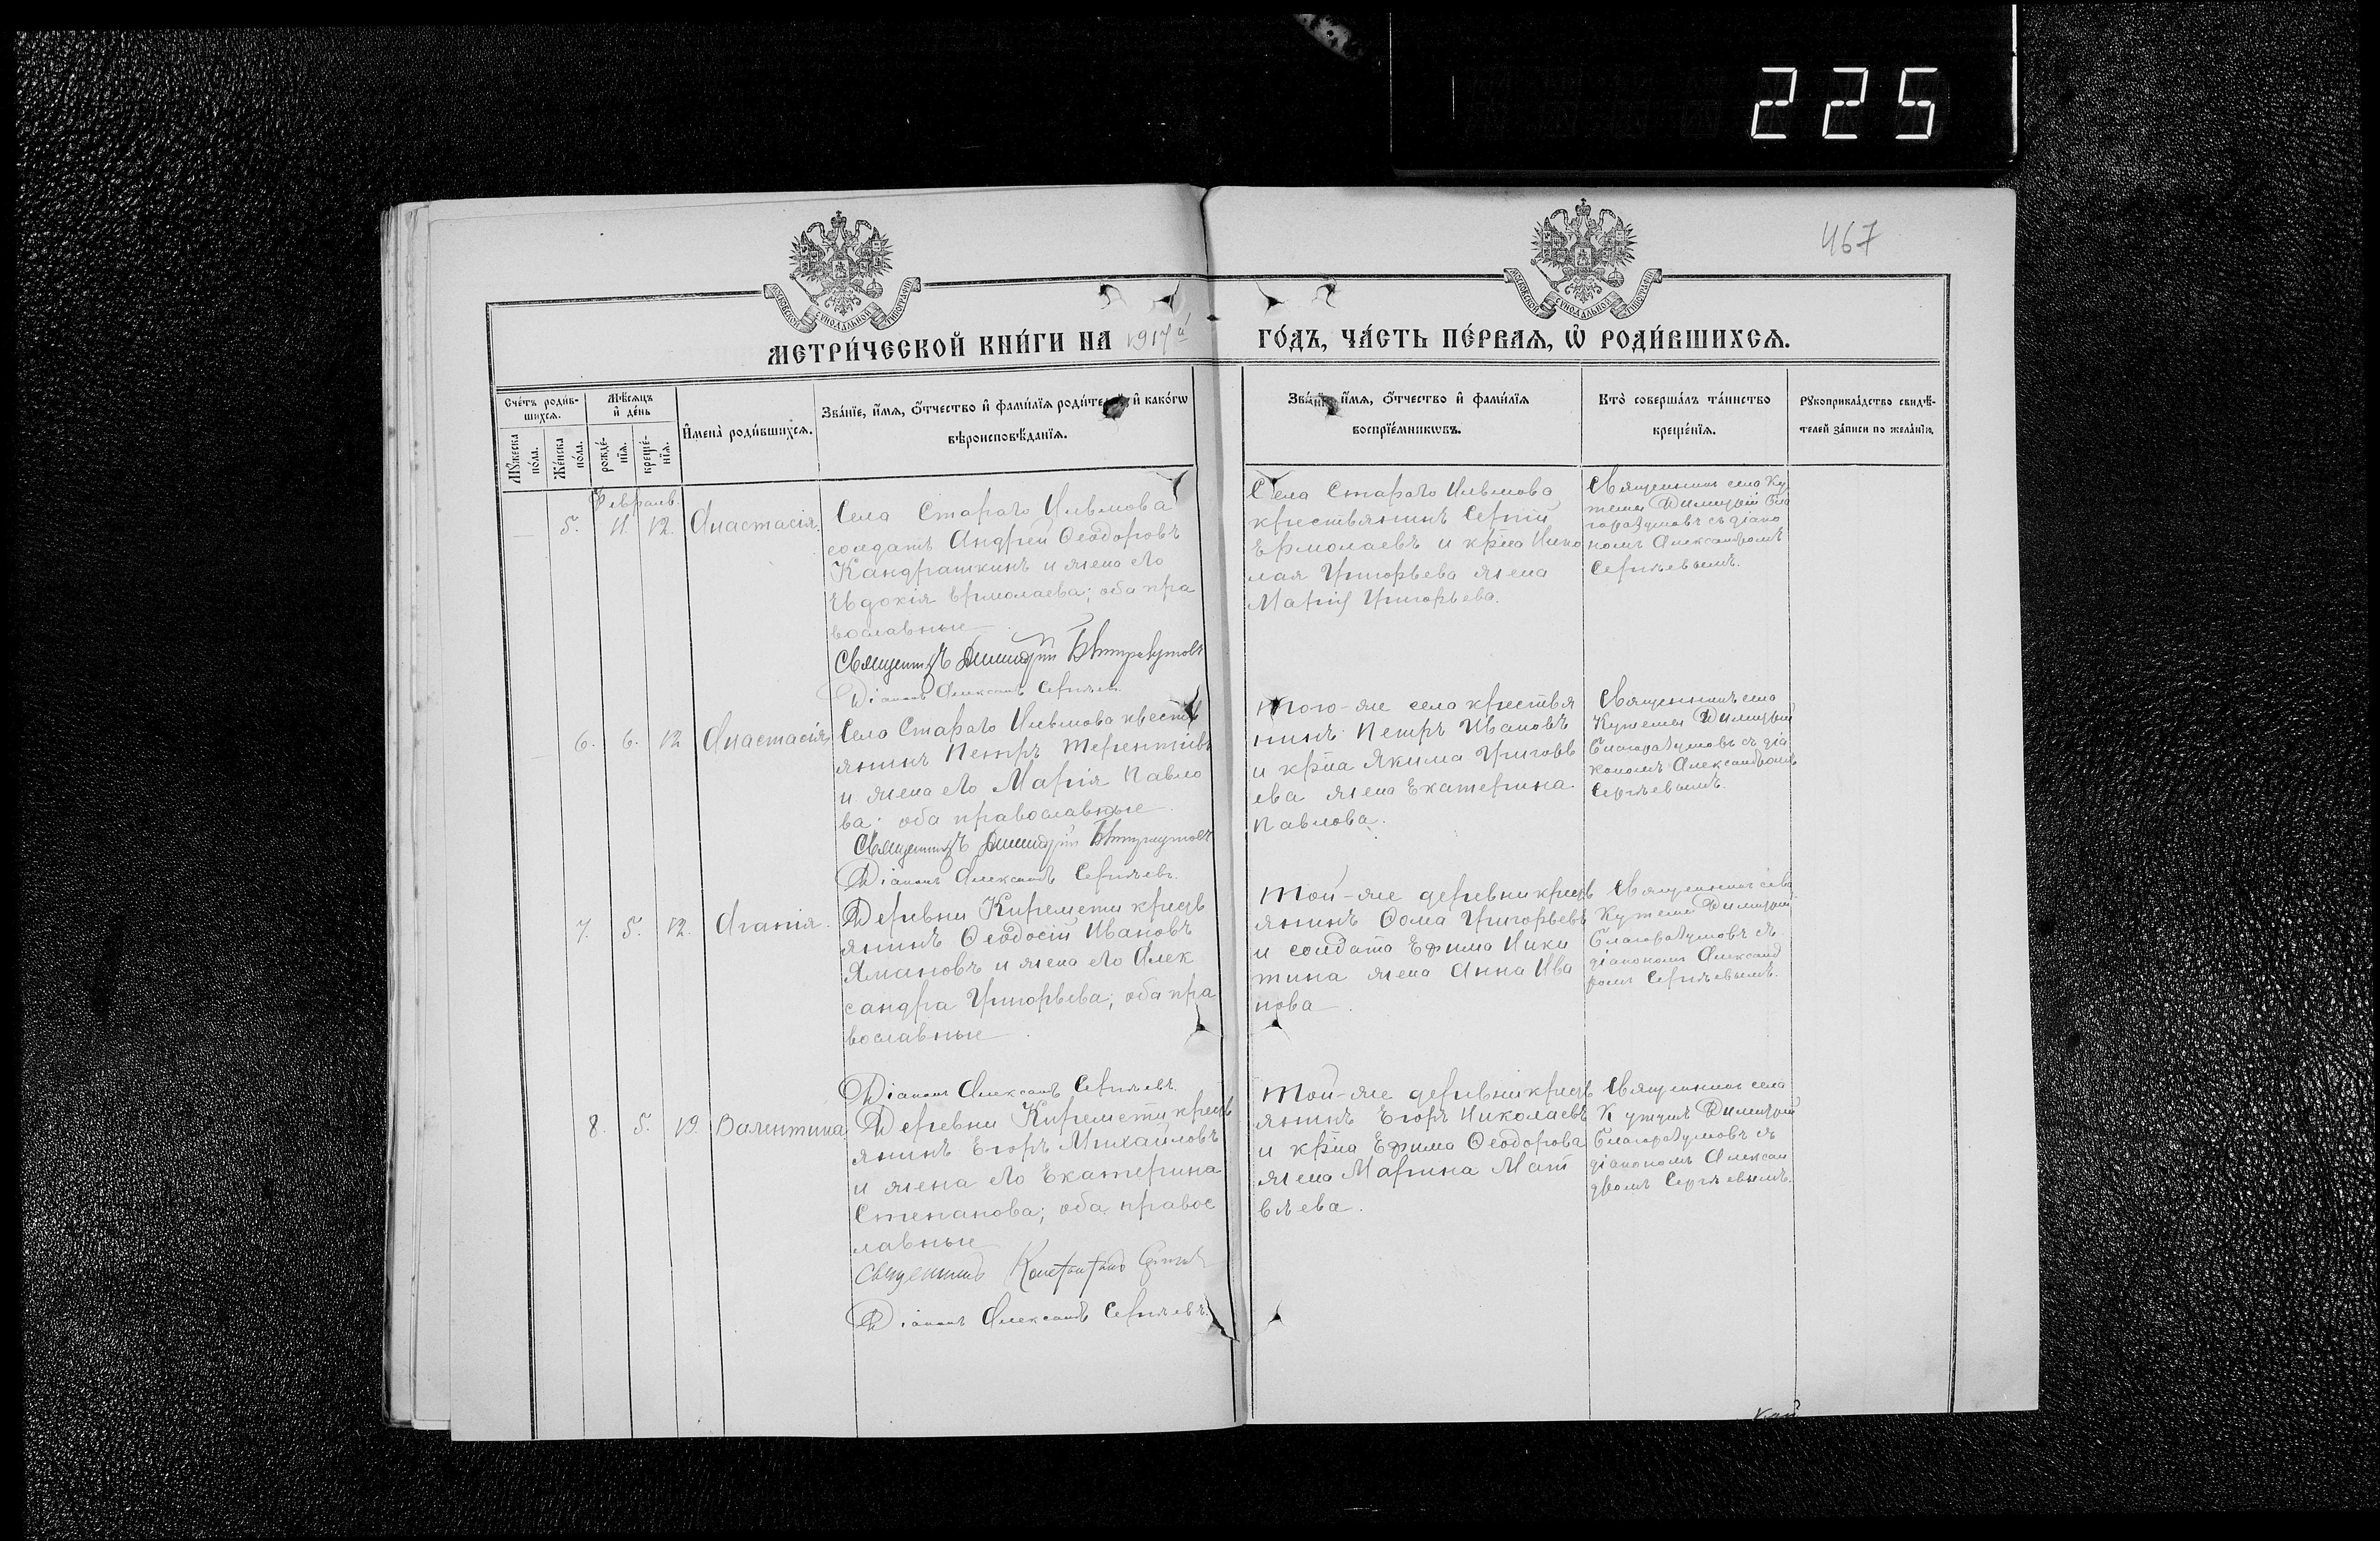 225
467
МОСКОВСКОЙ СѴНОДАЛЬНОЙ ТИПОГРАФІИ
МОСКОВСКОЙ СѴНОДАЛЬНОЙ ТИПОГРАФІИ
МЕТРИ́ЧЕСКОЙ КНИ́ГИ НА 1917й ГО́ДЪ, ЧА́СТЬ ПЕ́РВАѦ, Ѡ҆ РОДИ́ВШИХСѦ.
Сче́тъ роди́в-
шихсѧ.
Мѣ́сѧцъ
и҆ де́нь
Мꙋ́жеска
по́ла.
Же́нска
по́ла.
рожде́-
нїѧ.
креще́-
нїѧ.
И҆мена̀ роди́вшихсѧ.
Зва́нїе, и҆́мѧ, ѻ҆́тчество и҆ фамѝлїѧ роди́телей, и҆ како́гѡ
вѣроисповѣ́данїѧ.
Зва́нїе, и҆́мѧ, ѻ҆́тчество и҆ фамѝлїѧ
воспрїе́мникѡвъ.
Кто̀ соверша́лъ та́инство
креще́нїѧ.
Рꙋкоприкла́дство свидѣ́-
телей за́писи по жела́нїю.
Февраль.
5. 11. 12. Анастасія.
Села Стараго Ильмова
солдатъ Андрей Ѳеодоровъ
Кандрашкинъ и жена его
Евдокія Ермолаева; оба пра
вославные
Священникъ Димитрій Благоразумовъ
Діаконъ Александръ Сергѣевъ.
Села Стараго Ильмова
крестьянинъ Сергій
Ермолаевъ и кр̃на Нико
лая Григорьева жена
Марія Григорьева.
Священникъ села Ку
темы Димитрій Бла
горазумовъ съ діако
номъ Александромъ
Сергѣевымъ.
6. 6. 12 Анастасія
Села Стараго Ильмова крестъ
янинъ Петръ Терентьевъ
и жена его Марія Павло
ва; оба православные
Священникъ Димитрій Благоразумовъ
Діаконъ Александръ Сергѣевъ.
Того-же села крестья
нинъ Петръ Ивановъ
и кр̃на Якима Григорь
ева жена Екатерина
Павлова.
Священникъ села
Кутемы Димитрій
Благоразумовъ съ діа
кономъ Александромъ
Сергѣевымъ.
7. 5. 12. Агапія.
Деревни Киремети кресть
янинъ Ѳеодосій Ивановъ
Ямановъ и жена его Алек
сандра Григорьева; оба пра
вославные
Діаконъ Александръ Сергѣевъ.
Той-же деревни кресть
янинъ Ѳома Григорьевъ
и солдата Ефима Ники
тина жена Анна Ива
нова.
Священникъ села
Кутемы Димитрій
Благоразумовъ съ
діакономъ Александ
ромъ Сергѣевымъ.
8. 5. 19. Валентина
Деревни Киремети кресть
янинъ Егоръ Михайловъ
и жена его Екатерина
Степанова; оба правос
лавные
Священникъ Константинъ
Діаконъ Александръ Сергѣевъ.
Той-же деревни кресть
янинъ Егоръ Николаевъ
и кр̃на Ефима Ѳеодорова
жена Марина Мат
вѣева.
Священникъ села
Димитрій
Благоразумовъ съ
діакономъ Алексан
дромъ Сергѣевымъ.